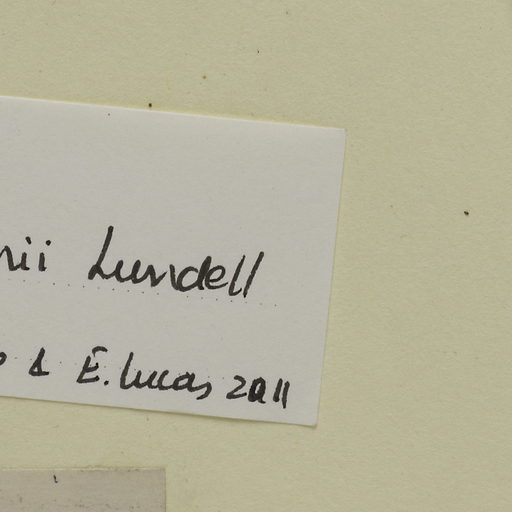 nii Lundell
& E. Lucas 2011